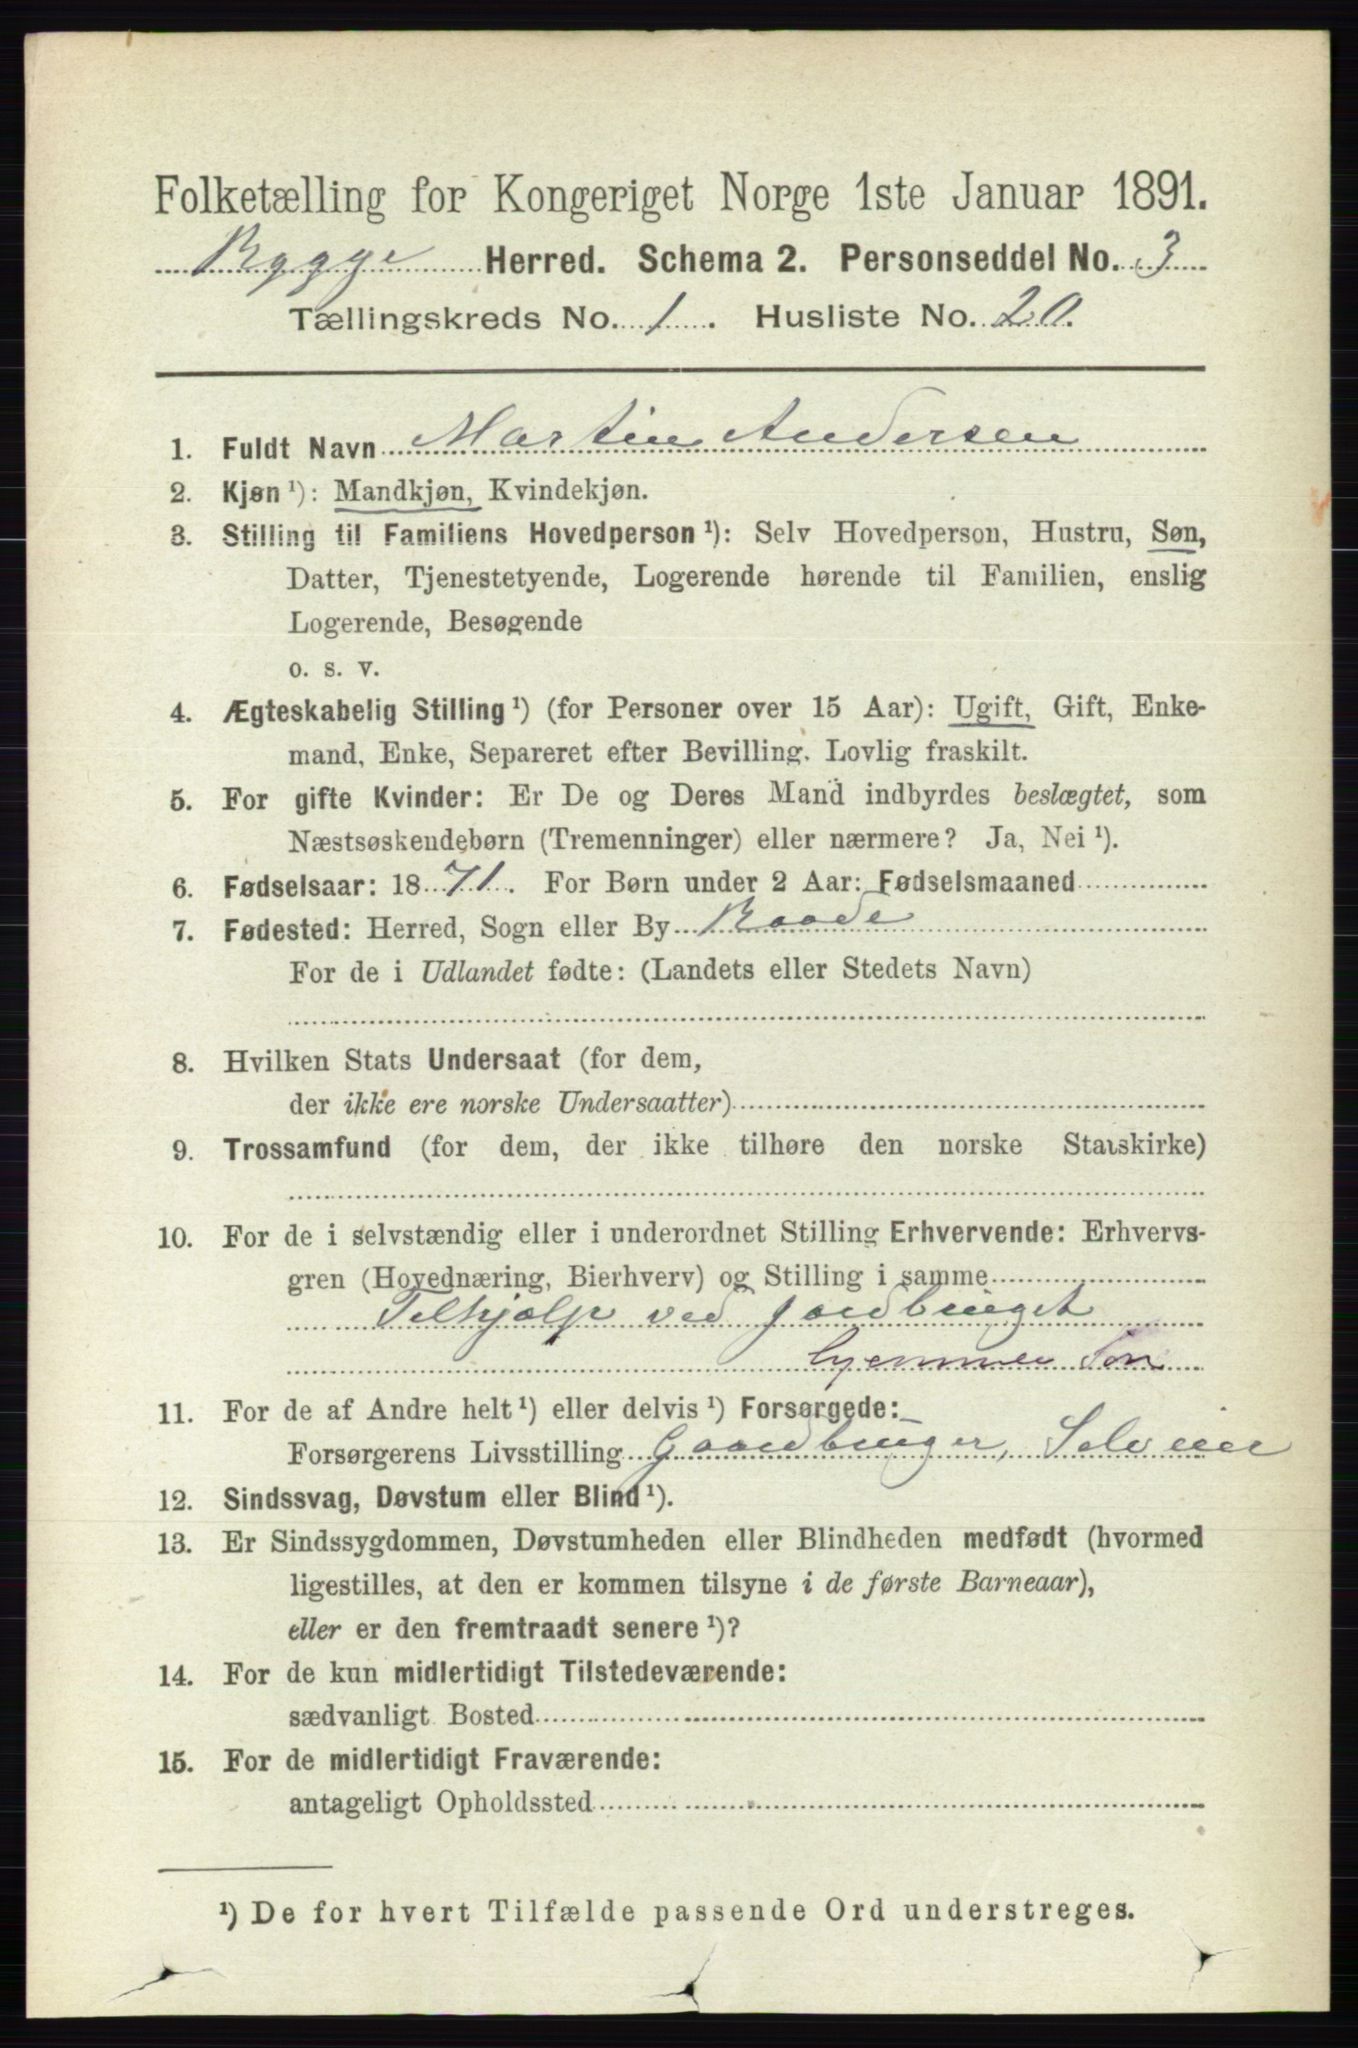 Folketælling for Kongeriget Norge 1ste Januar 1891.
Rygge Herred. Schema 2. Personseddel No. 3
Tællingskreds No. 1. Husliste No. 20.
1. Fuldt Navn Martin Andersen
2. Kjøn ¹): Mandkjøn, Kvindekjøn.
3. Stilling til Familiens Hovedperson ¹): Selv Hovedperson, Hustru, Søn,
Datter, Tjenestetyende, Logerende hørende til Familien, enslig
Logerende, Besøgende
o. s. v.
4. Ægteskabelig Stilling ¹) (for Personer over 15 Aar): Ugift, Gift, Enke-
mand, Enke, Separeret efter Bevilling. Lovlig fraskilt.
5. For gifte Kvinder: Er De og Deres Mand indbyrdes beslægtet, som
Næstsøskendebørn (Tremenninger) eller nærmere? Ja, Nei ¹).
6. Fødselsaar: 1871. For Børn under 2 Aar: Fødselsmaaned
7. Fødested: Herred, Sogn eller By Raade
For de i Udlandet fødte: (Landets eller Stedets Navn)
8. Hvilken Stats Undersaat (for dem,
der ikke ere norske Undersaatter)
9. Trossamfund (for dem, der ikke tilhøre den norske Statskirke)
10. For de i selvstændig eller i underordnet Stilling Erhvervende: Erhvervs-
gren (Hovednæring, Bierhverv) og Stilling i samme
Tilhjælp ved jordbruget
hjemmev. Søn
11. For de af Andre helt ¹) eller delvis ¹) Forsørgede:
Forsørgerens Livsstilling Gaardbruger, Selveier
12. Sindssvag, Døvstum eller Blind ¹).
13. Er Sindssygdommen, Døvstumheden eller Blindheden medfødt (hvormed
ligestilles, at den er kommen tilsyne i de første Barneaar),
eller er den fremtraadt senere ¹)?
14. For de kun midlertidigt Tilstedeværende:
sædvanligt Bosted
15. For de midlertidigt Fraværende:
antageligt Opholdssted
¹) De for hvert Tilfælde passende Ord understreges.